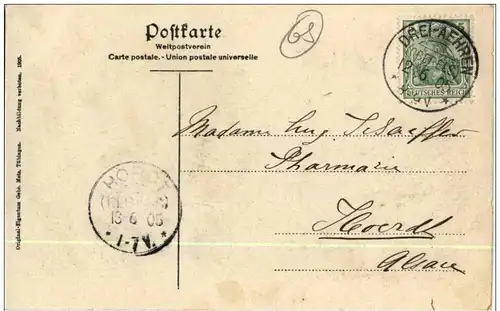 Postkarte
Weltpostverein
Carte postale. - Union postale universelle
Nachbildung verboten. 1905.
Original-Eigentum Gebr. Metz, Tübingen.
68
DREI-AEHREN
12 6
DEUTSCHES REICH
Madame Aug. Schaeffer
Pharmacie
Hoerdt
Alsace
HÖRDT
13 6 05
1-7V.